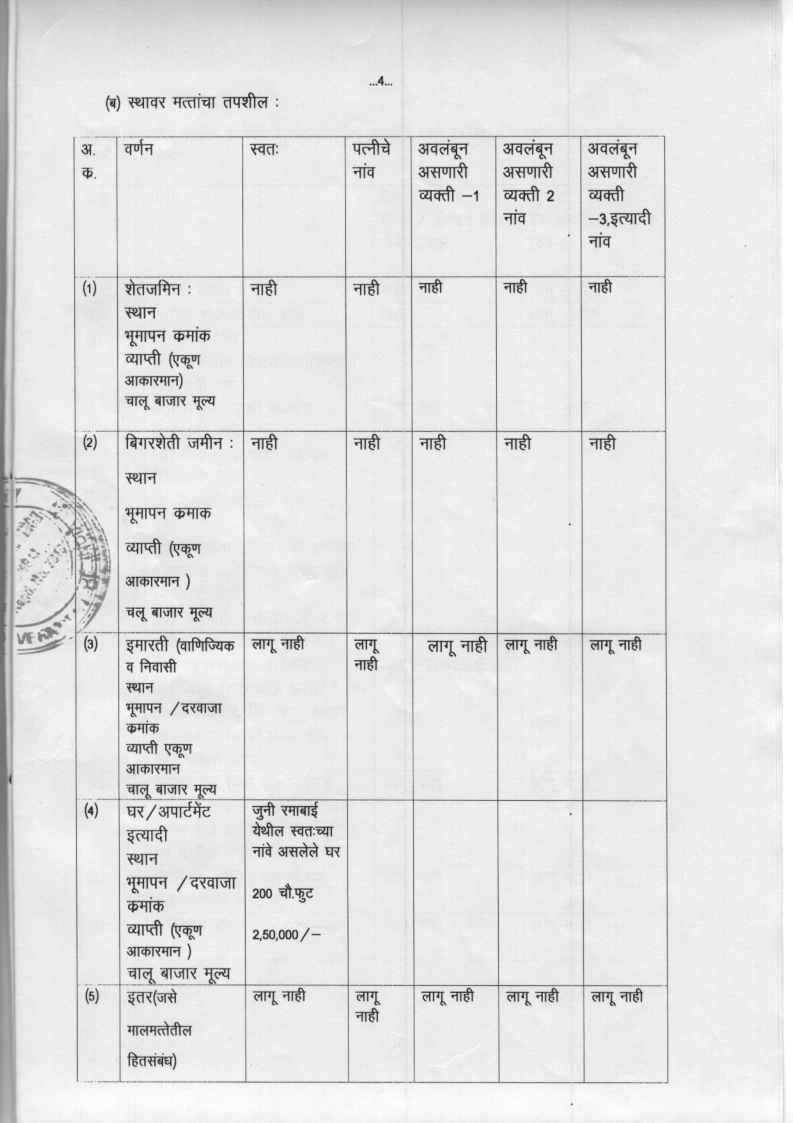 ...4...
(ब) स्थावर मत्तांचा तपशील :
अ.
क्र.
वर्णन
स्वतः
पत्नीचे
नांव
अवलंबून
असणारी
व्यक्ती –1
अवलंबून
असणारी
व्यक्ती 2
नांव
अवलंबून
असणारी
व्यक्ती
–3,इत्यादी
नांव
(1)
शेतजमिन :
स्थान
भूमापन क्रमांक
व्याप्ती (एकूण
आकारमान)
चालू बाजार मूल्य
नाही
नाही
नाही
नाही
नाही
(2)
बिगरशेती जमीन :
स्थान
भूमापन क्रमाक
व्याप्ती (एकूण
आकारमान )
चलू बाजार मूल्य
नाही
नाही
नाही
नाही
नाही
(3)
इमारती (वाणिज्यिक
व निवासी
स्थान
भूमापन /दरवाजा
क्रमांक
व्याप्ती एकूण
आकारमान
चालू बाजार मूल्य
लागू नाही
लागू
नाही
लागू नाही
लागू नाही
लागू नाही
(4)
घर/अपार्टमेंट
इत्यादी
स्थान
भूमापन /दरवाजा
क्रमांक
व्याप्ती (एकूण
आकारमान )
चालू बाजार मूल्य
जुनी रमाबाई
येथील स्वतःच्या
नांवे असलेले घर
200 चौ.फुट
2,50,000/–
(5)
इतर(जसे
मालमत्तेतील
हितसंबंध)
लागू नाही
लागू
नाही
लागू नाही
लागू नाही
लागू नाही